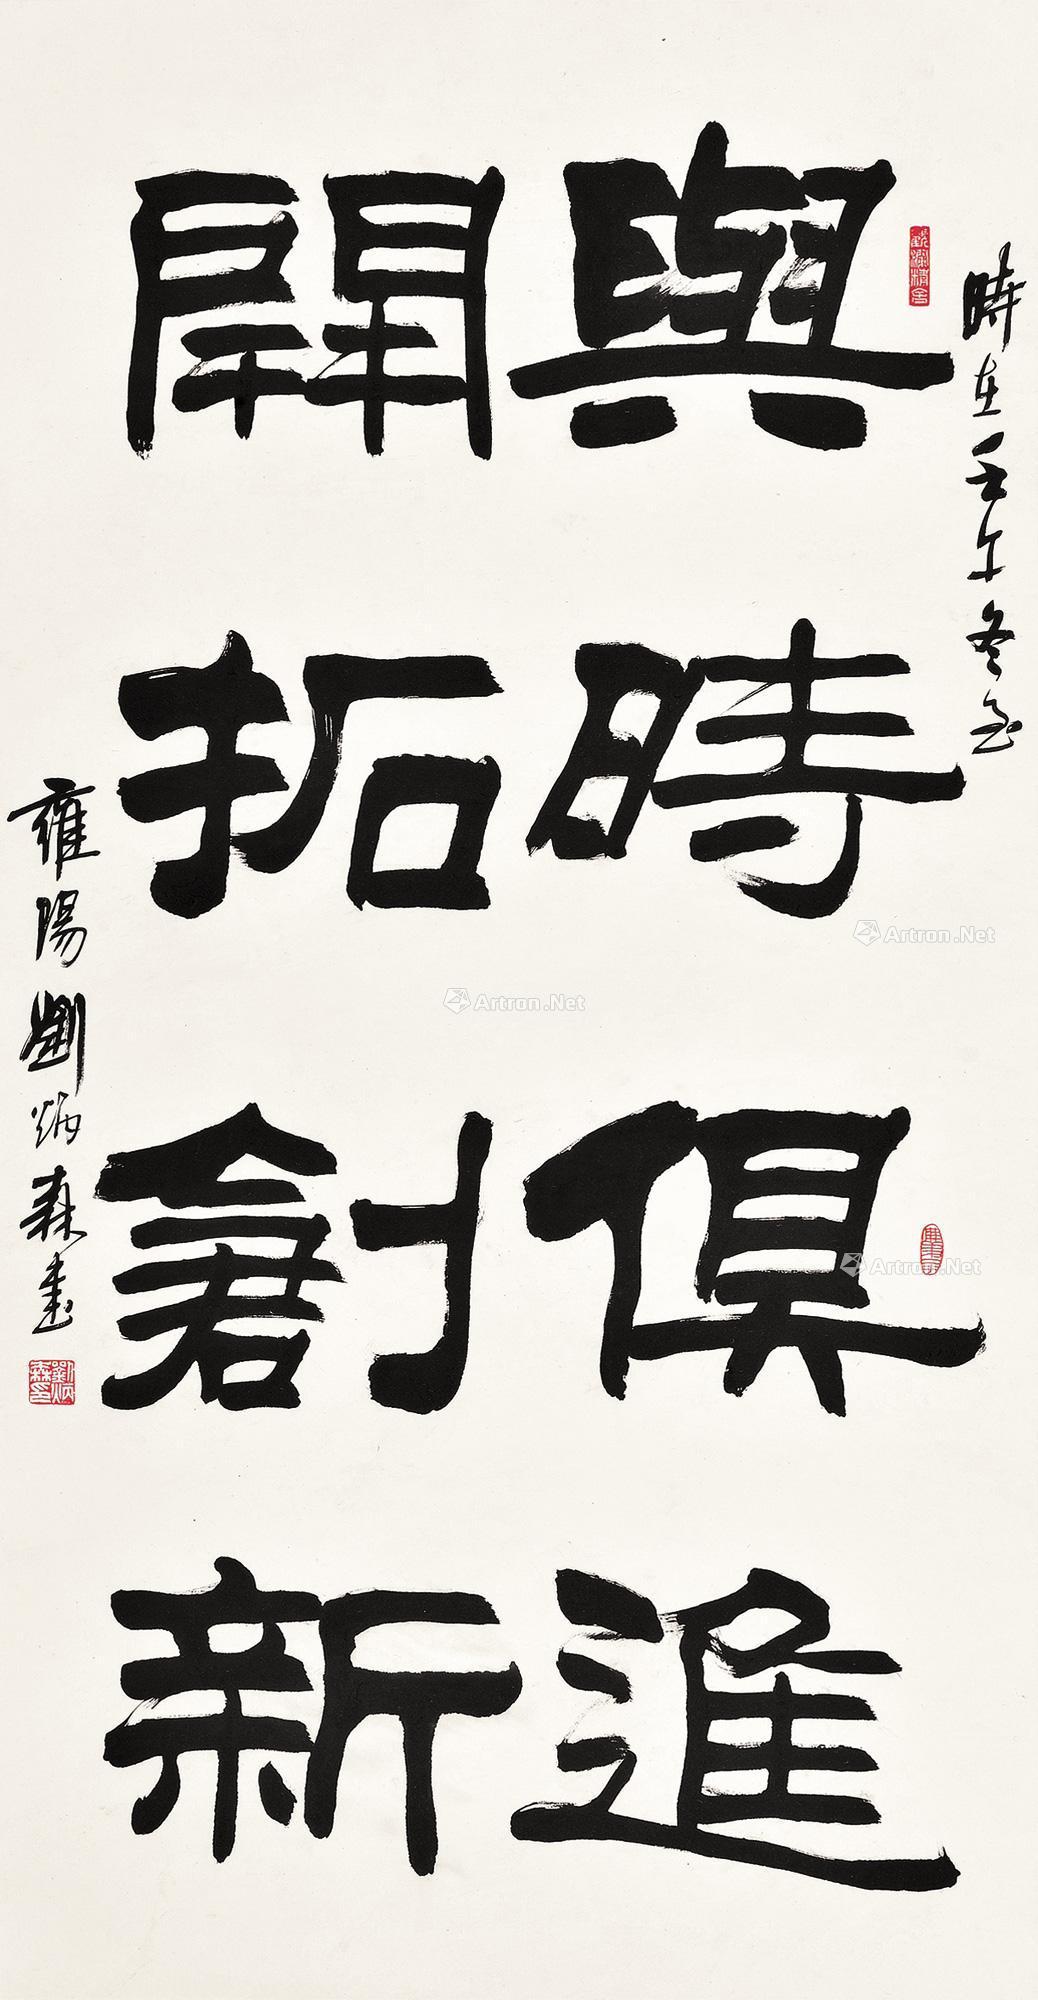 時在壬午冬至
與時俱進
開拓創新
雍陽劉炳森書
劉炳森印
Artron.Net
Artron.Net
Artron.Net